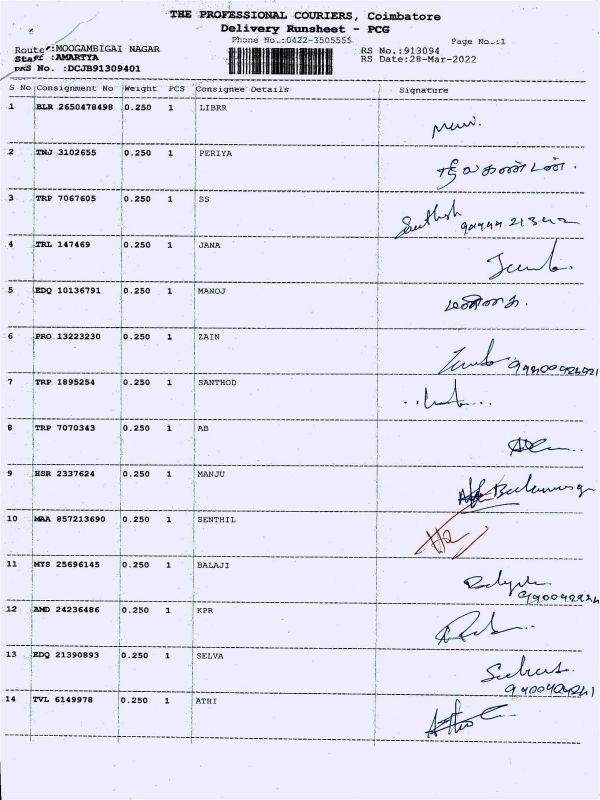 THE PROFESSIONAL COURIERS, Coimbatore
Delivery Runsheet - PCG
Phone No.:0422-3505555 Page No.:1
Route :MOOGAMBIGAI NAGAR RS No.:913094
Staff :AMARTYA RS Date:28-Mar-2022
DRS No. :DCJB91309401
S No Consignment No Weight PCS Consignee Details Signature
1 BLR 2650478498 0.250 1 LIBRR
2 TNJ 3102655 0.250 1 PERIYA
3 TRP 7067605 0.250 1 SS
Santhosh
4 TRL 147469 0.250 1 JANA
5 EDQ 10136791 0.250 1 MANOJ
6 PRO 13223230 0.250 1 ZAIN
7 TRP 1895254 0.250 1 SANTHOD
8 TRP 7070343 0.250 1 AB
9 HSR 2337624 0.250 1 MANJU
10 MAA 857213690 0.250 1 SENTHIL
11 MYS 25696145 0.250 1 BALAJI
12 AMD 24236486 0.250 1 KPR
13 EDQ 21390893 0.250 1 SELVA
14 TVL 6149978 0.250 1 ATHI